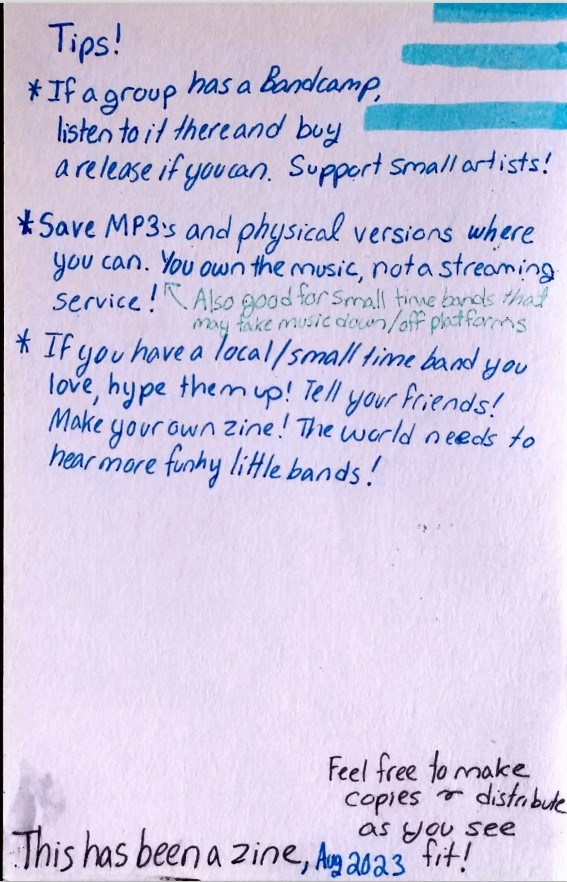 Tips!
* If a group has a Bandcamp,
listen to it there and buy
a release if you can. Support small artists!
* Save MP3's and physical versions where
you can. You own the music, not a streaming
service! Also good for small time bands that
may take music down/off platforms
* If you have a local/small time band you
love, hype them up! Tell your friends!
Make your own zine! The world needs to
hear more funky little bands!
Feel free to make
copies & distribute
as you see
fit!
This has been a zine, Aug 2023